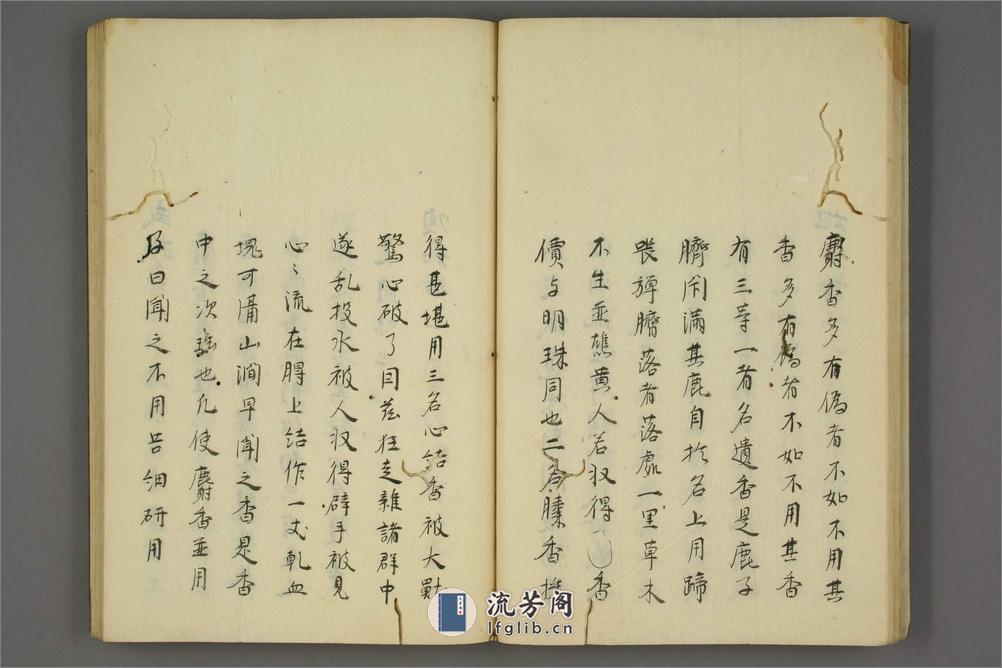 麝香多有偽者不如不用其
香多有偽者不如不用其香
有三等一者名遺香是鹿子
臍闭滿其鹿自於名上用蹄
啖臍落者落處一里草木
不生並蕉黄人若収得香
價与明珠同也二名臊香採
得甚堪用三名心结香被大獣
驚心破了囙兹狂走雜諸群中
遂乱投水被人収得擘手被見
心〻流在脾上结作一丈乾血
塊可澗山澗早闻之香是香
中之次也凡使麝香並用
子日闻之不用吕细研用
流芳阁
lfglib.cn